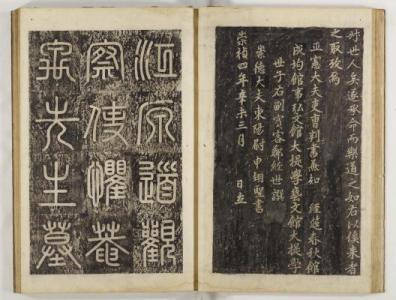 於世人矣遂承命而樂道之如右以俟來者
之取攷焉
正憲大夫吏曹判書兼知 經筵春秋館
成均館事弘文館大提學藝文館大提學
世子右副賓客鄭經世撰
崇德大夫東陽尉申翊聖書
崇禎四年辛未三月 日立
江原道觀
察使懼菴
先生墓